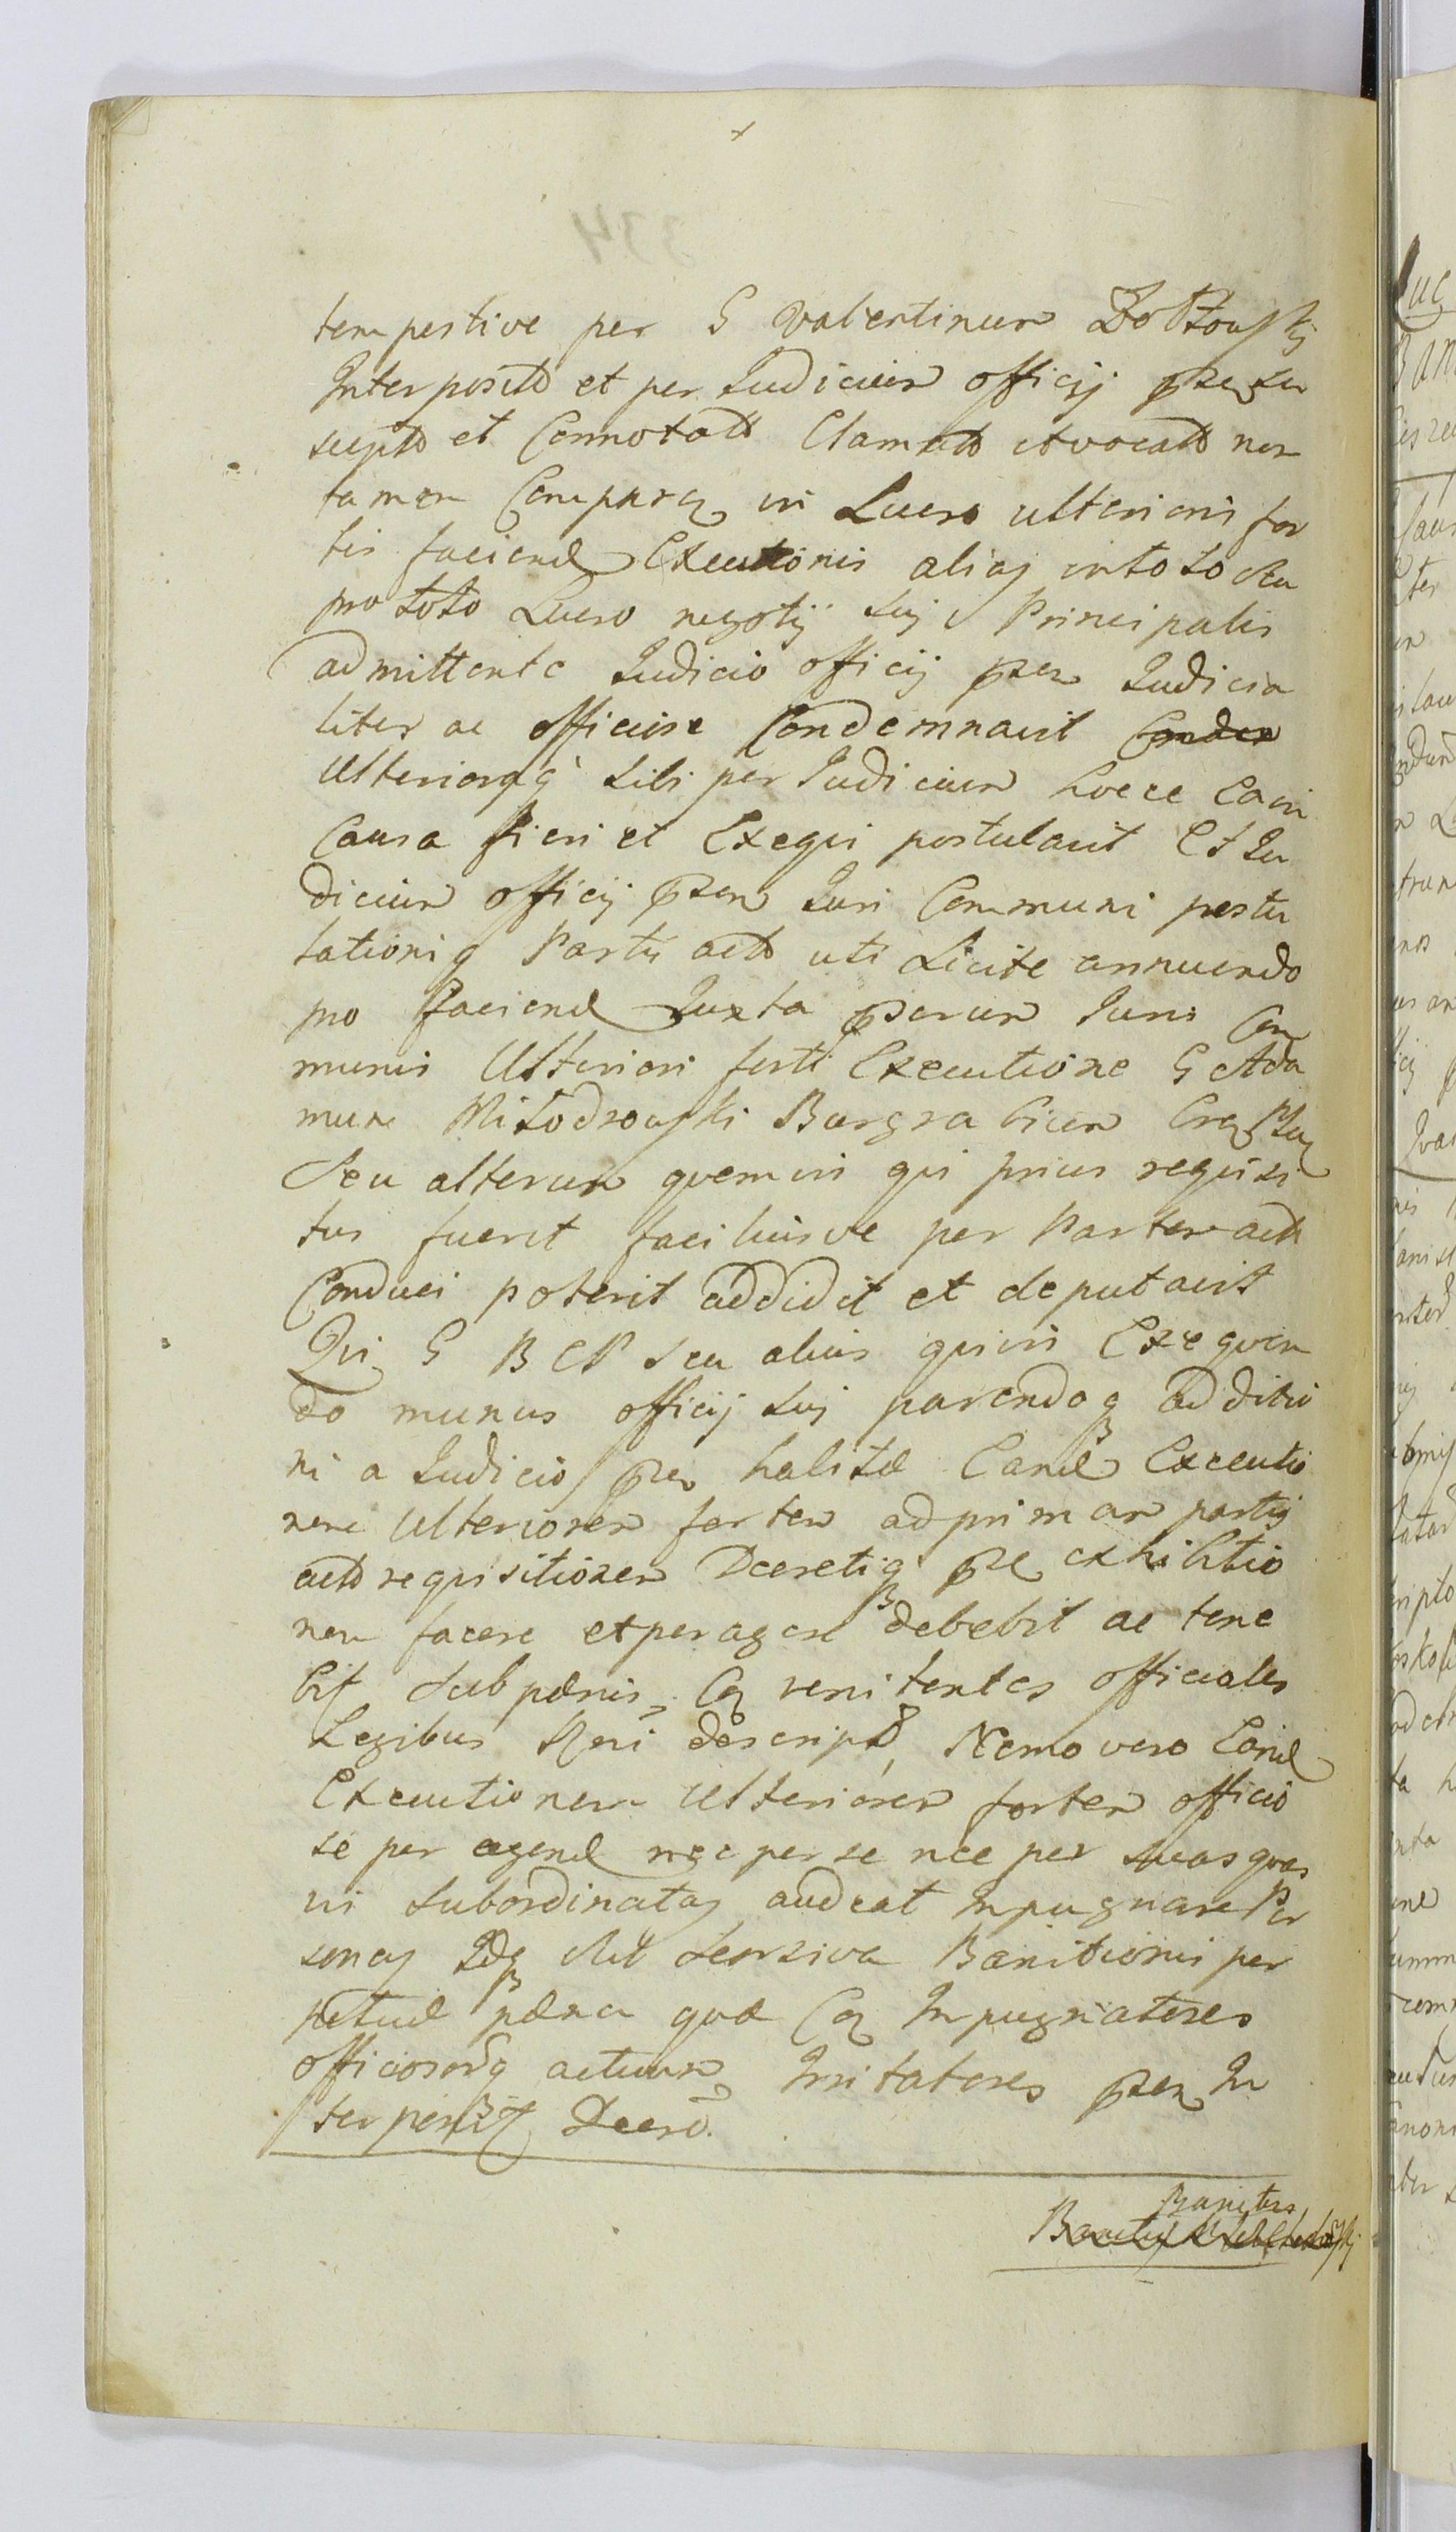 tempestive per G Valentinum Zołtowskj
Interposito et per Judicium officij pres su
scepto et Connotato Clamato Avocato non
tamen Comparen in Lucro ulterioris for
tis faciend Executionis alias in toto seu
pro toto Lucro negotij sui Principalis
admittente Judicio officij pres Judicia
liter ac officiose Condemnavit
Ulteriorq sibi per Judicium hocce Ea in
Causa fieri et Exequi postulavit Et Ju
dicium officij psen Juri Communi postu
lationiq Partis acto uti Licite annuendo
pro faciend Juxta Juris Com
munis Ulteriori forti Executione G Ada
mum Miłodrowski Burgrabium
Seu alterum quemvis qui prius requisi
tus fuerit faciliusve per Partem acto
Conduci poterit addidit et deputavit
Qui G B C P seu alius quivis Exequen
do munus officij sui parendoq additio
ni a Judicio pres habitæ Eand Executio
nem Ulterioren fortem ad primam partis
acto requisitionem Decretiq pre exhibitio
nem facere et peragere debebit ac tene
bit sub pænis Co renitentes officiales
Legibus Rni descriptis, Nemo vero Eand
Executionem Ulteriorem fortem officio
se per agend nec per se nec per suas quas
vis subordinatas audeat Inpugnare Per
sonas Idq Banitionis per
petuæ pæna quæ Co Inpugnatores
officiosorq actuum Irritatores psen In
terponit Decro.
Banitus